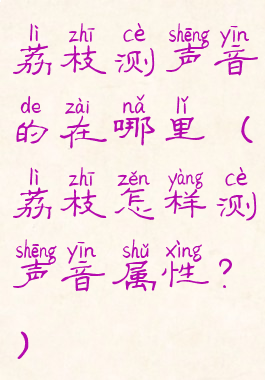 lì zhī cè shēng yīn
荔枝测声音
de zài nǎ lǐ
的在哪里（
lì zhī zěn yàng cè
荔枝怎样测
shēng yīn shǔ xìng
声音属性？
）